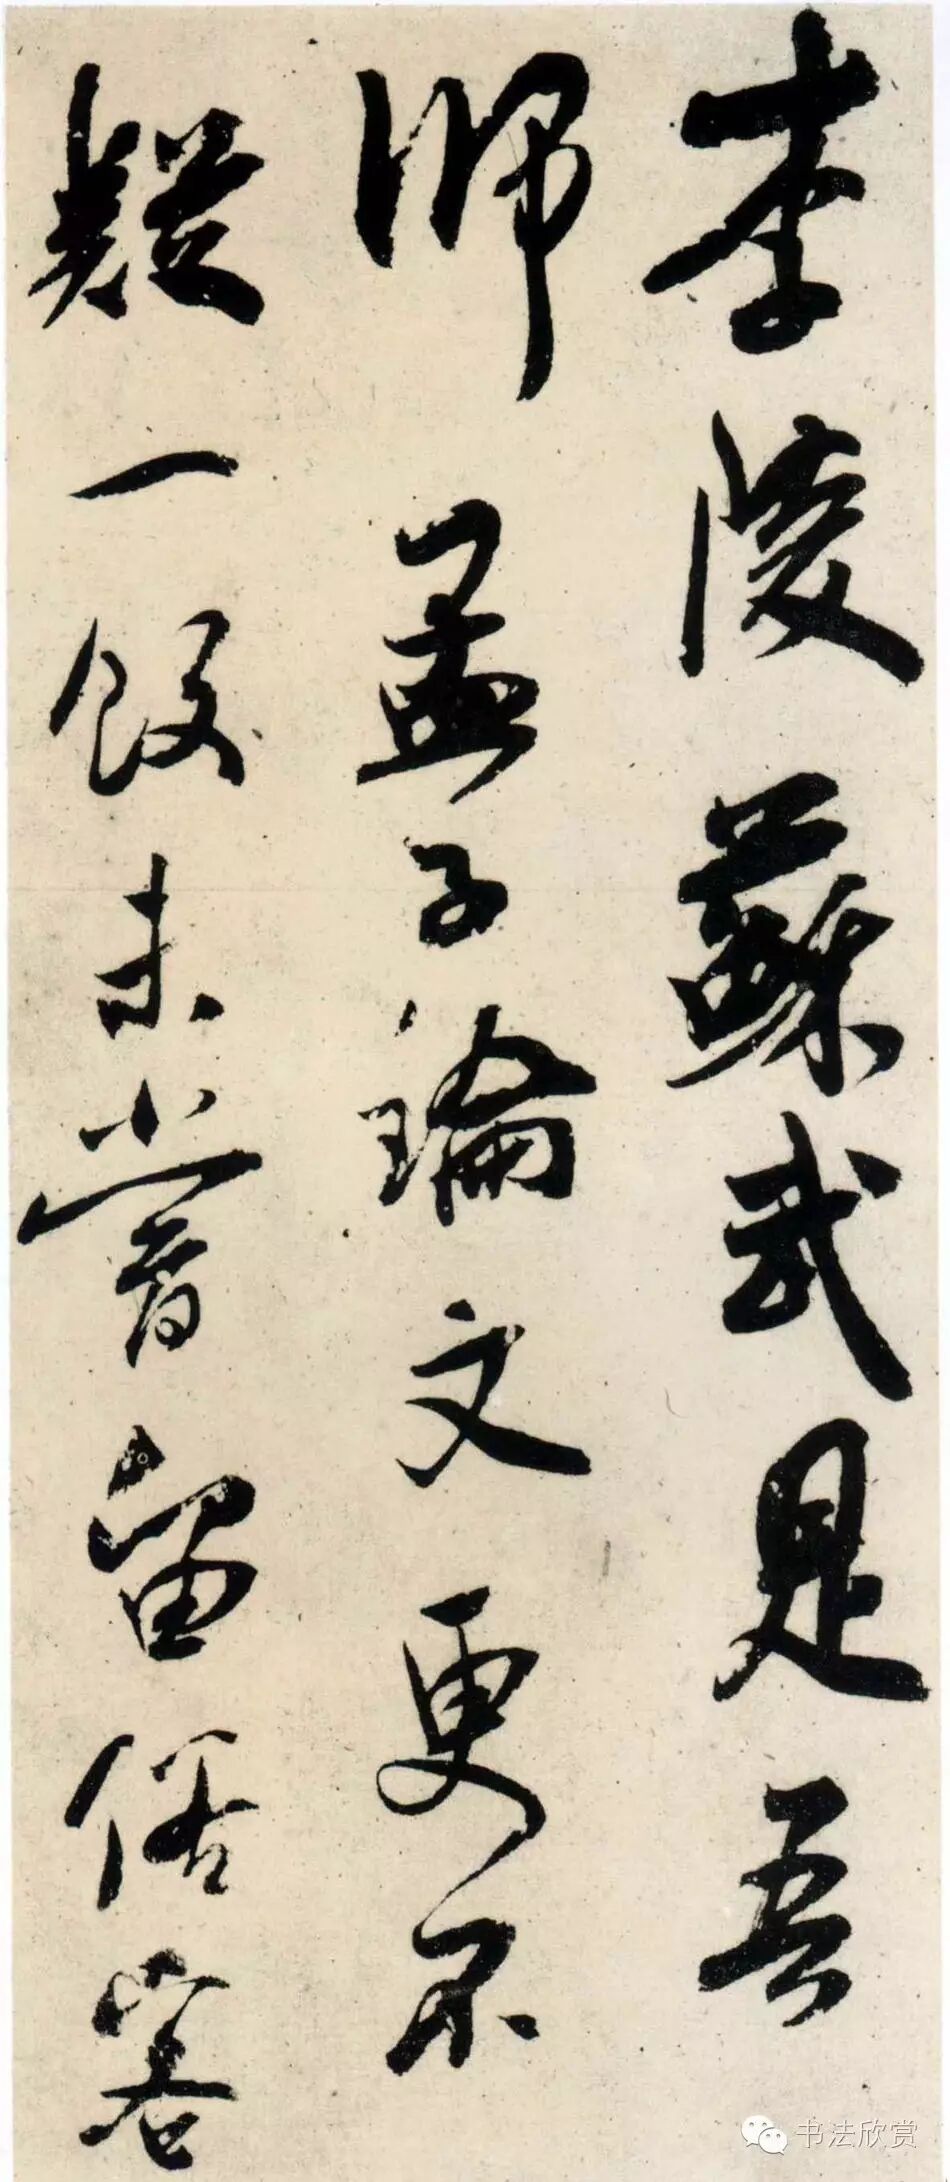 李陵蘇武是吾
師孟子論文更不
疑一飯未嘗留俗客
书法欣赏